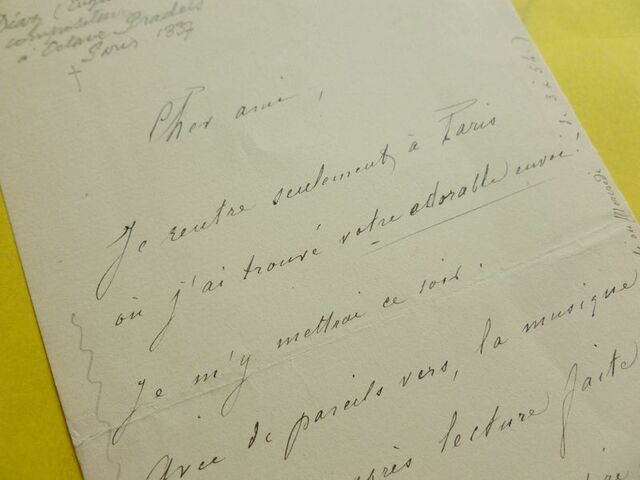 Diaz (Eug
compositeur
à Octave Pradels
Paris 1837
Cher ami,
Je rentre seulement, à Paris
où j'ai trouvé votre adorable envoi!
Je m'y mettrai ce soir.
Avec de pareils vers, la musique
après lecture faite
ou Mercredi